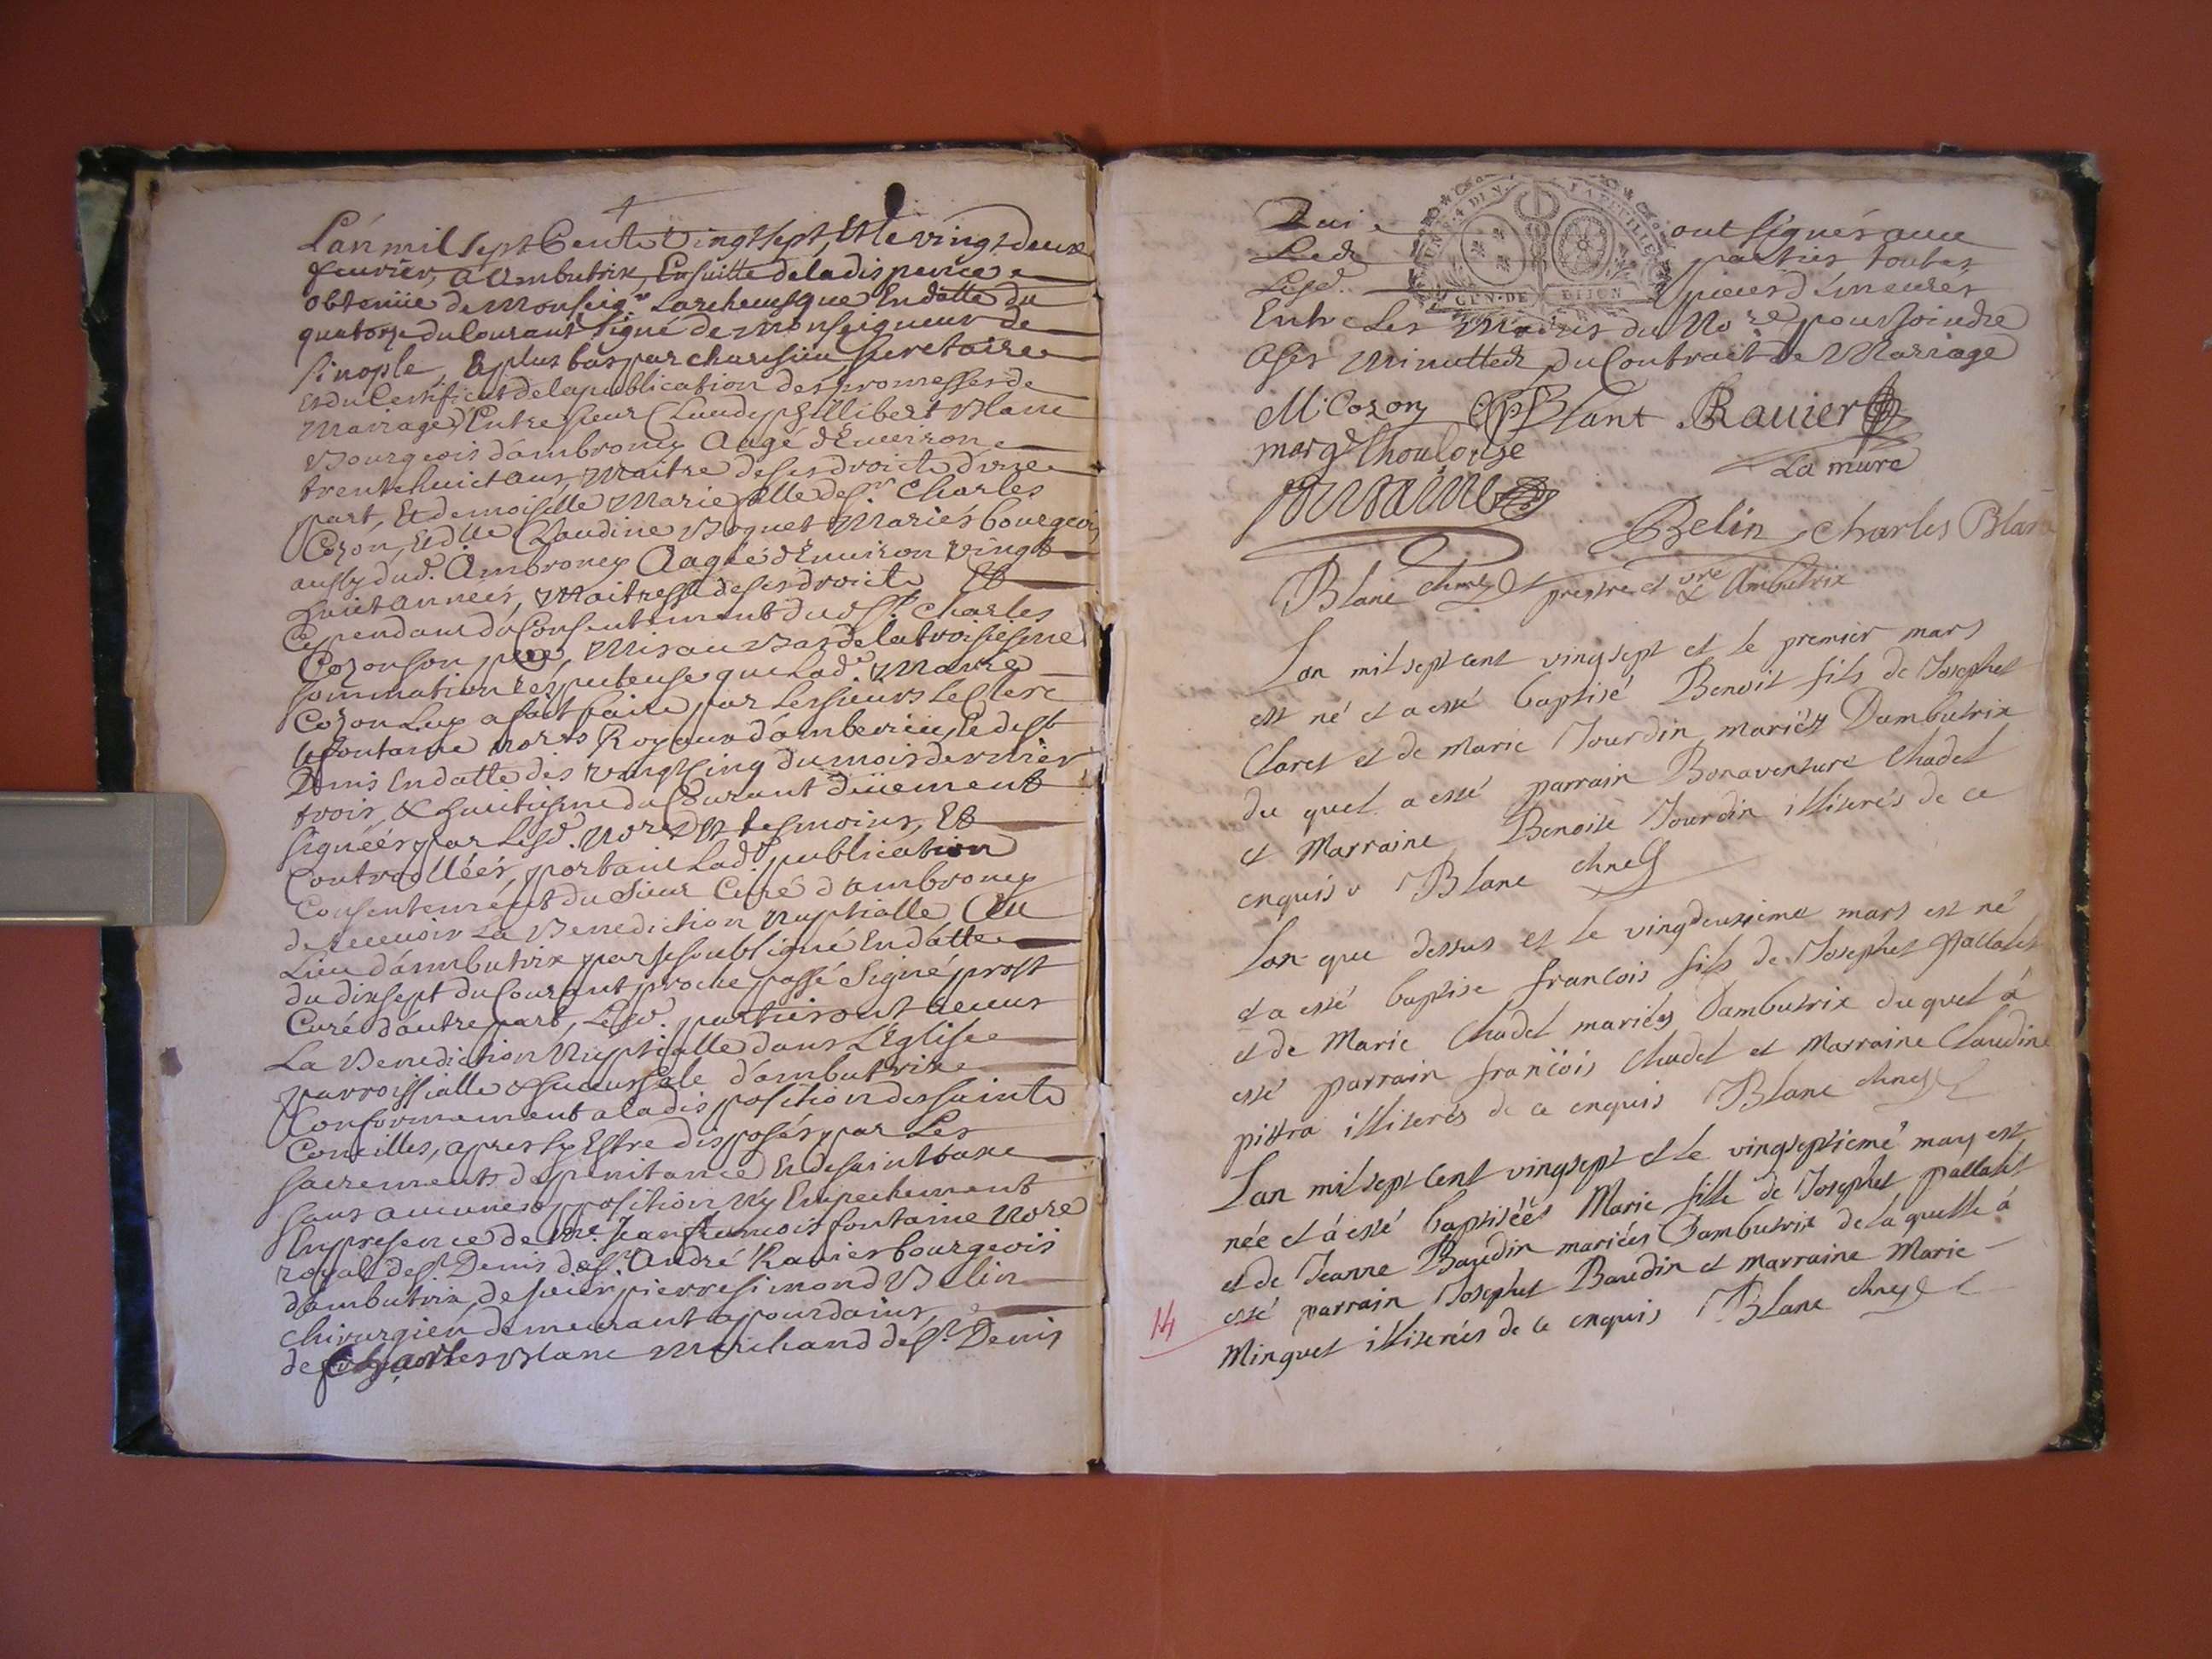 L'an mil sept Cents vingt sept, et le vingt deux
feuvrier, a Ambutrix, Ensuitte de la dispence
obtenüe de Monseigr. Larchevesque En datte du
quatorze du Courant signé de Monseigneur de
Sinople, & plus bas par secretaire
Et du Certificat de la publication des promesses de
Mariage, Entre sieur Claude phillibert Blanc
Bourgeois d'ambroney Aagé d'Environ
trente huict ans, Maitre de ses droicts d'une
part, Et demoiselle Marie fille de Sr. Charles
Cozon, Et dlle Claudine Boquet Mariés bourgeois
aussy dud. Ambroney Aagée d'Environ vingt
huict années, Maitresse de ses droicts Et
Cependant du Consentement dud. Sr. Charles
Cozon son pere, Mis au Bas de la troisiesme
sommation respectueuse que Lad. Marie
Cozon Luy a fait faire, par Les sieurs Leclerc
& fontaine Nores Royaux d'amberieu, & de St
Denis En datte des vingt Cinq du mois dernier
trois, & huictiesme du Courant düement
signées par Lesd. Nores Et tesmoins, Et
Controllées, portant Lad. publication
Consentement du Sieur Curé d'ambroney
de recevoir La Benediction Nuptialle Au
Lieu d'ambutrix par Le soubsigné En datte
du dixsept du Courant proche passé Signé prost
Curé d'autre part, Lesd. parties ont receus
La Benediction Nuptialle dans L'Eglise
parroissialle & succursale d'ambutrix
Conformement a la disposition des saints
Concilles, apres sy Estre disposés par Les
sacrements de penitance Et de
sans aucune opposition ny Empechement
En presence de Me. Jean francois fontaine Nore
royal de St Denis de Sr. André Ravier bourgeois
d'ambutrix, de sieur pierre simond Belin
chirurgien demeurant a
de Charles Blanc Marchand de St. Denis
Qui ont signés avec
Led. parties toutes
Lesd. pieces d'emeures
Entre Les Mains du Nore pour Joindre
a ses Minuttes du Contract de Mariage
M. Cozon CP Blanc Ravier
marg thoulouse La mure
fontaine
Belin Charles Blanc
Blanc chne prestre et vre d'Ambutrix
Lan mil sept cent vingsept et le premier mars
est né et a esté baptisé Benoit fils de Josephet
Claret et de Marie Jourdin mariés Dambutrix
du quel a esté parrain Bonaventure Chadel
et Marraine Benoite Jourdin illiterés de ce
enquis Blanc chne
Lan que dessus et le vingdeuxieme mars est né
et a esté baptise francois fils de Josephet pallalet
et de Marie Chadel mariés Dambutrix duquel à
esté parrain francois Chadel et Marraine Claudine
pittra illiterés de ce enquis Blanc chne
Lan mil sept cent vingsept et le vingseptieme may est
née et à esté baptisée Marie fille de Josephet pallalet
et de Jeanne Baudin mariés Dambutrix de la quelle à
esté parrain Josephet Baudin et marraine Marie
Minguet illiterées de ce enquis Blanc chne
14